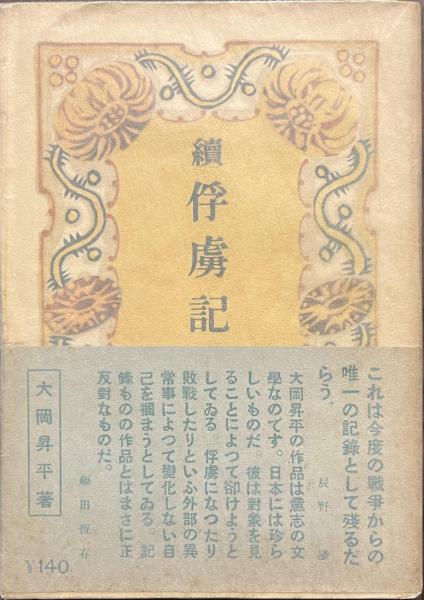 續
俘虜記
これは今度の戰爭からの
唯一の記錄として殘るだ
らう。
辰野 隆
大岡昇平の作品は意志の文
學なのです。日本には珍ら
しいものだ。彼は對象を見
ることによつて卻けようと
してゐる。俘虜になつたり
敗戰したりといふ外部の異
常事によつて變化しない自
己を摑まうとしてゐる。記
錄ものの作品とはまさに正
反對なものだ。
福田恆存
大岡昇平著
¥140.